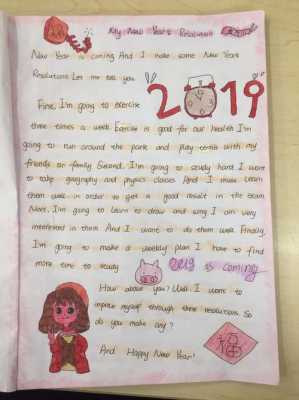 My New Year's Resolution
New Year is coming And I make some New Year's
Resolutions Let me tell you
2019
First, I'm going to exercise
three times a week. Exercise is good for our health I'm
going to run around the park and play tennis with my
friends or family Second, I'm going to study hard I want
to take geography and physics classes And I must learn
them well in order to get a good result in the exam
Next, I'm going to learn to draw and sing I am very
interested in them And I want to do them well Finally
I'm going to make a weekly plan I have to find
more time to study
2019 is coming
How about you? Well I want to
improve myself through these resolutions So
do you make any?
And Happy New Year!
福